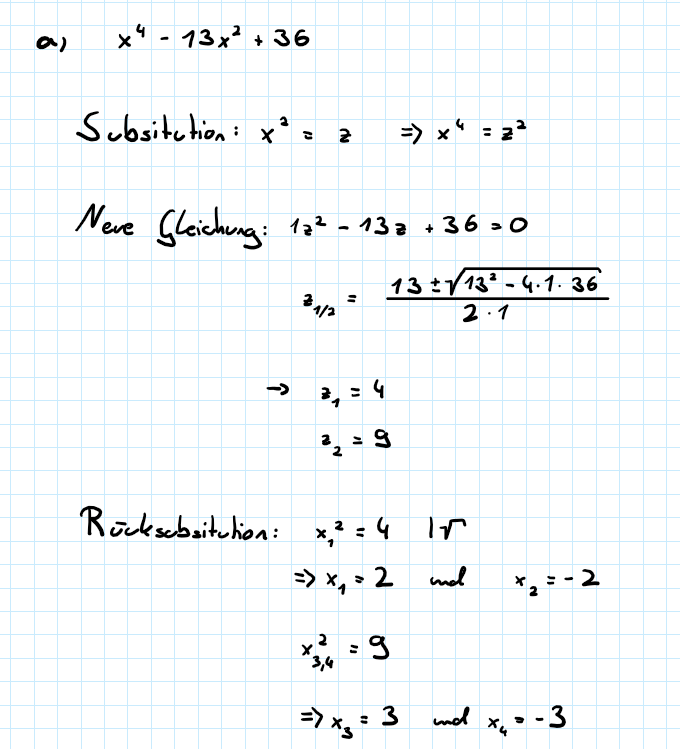 a) x⁴ - 13x² + 36
Subsitution: x² = z => x⁴ = z²
Neue Gleichung: 1z² - 13z + 36 = 0
z₁/₂ = (13 ± √(13² - 4·1·36)) / (2·1)
→ z₁ = 4
z₂ = 9
Rücksubsitution: x₁² = 4 |√
=> x₁ = 2 und x₂ = -2
x₃,₄² = 9
=> x₃ = 3 und x₄ = -3